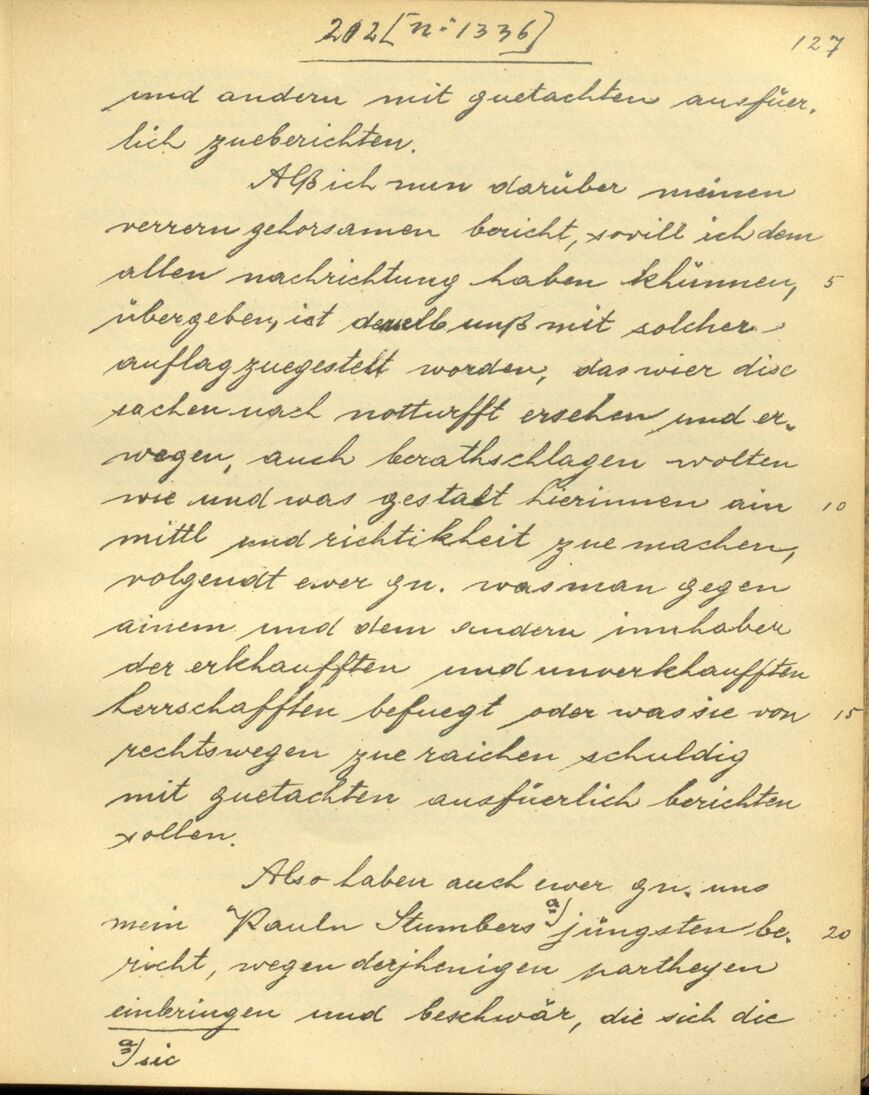 202 [nº 1336]
127
und andern mit guetachten ausfüer-
lich zueberichten.
Alß ich nun darüber meinen
verrern gehorsamen bericht, sovill ich dem
allen nachrichtung haben khünnen, 5
übergeben, ist derselb unß mit solcher
auflag zuegestelt worden, das wier dise
sachen nach notturfft ersehen und er-
wegen, auch berathschlagen wolten
wie und was gestalt hierinnen ain 10
mittl und richtikheit zue machen,
volgendt ewer gn. was man gegen
ainem und dem andern innhaber
der erkhaufften und unverkhaufften
herrschafften befuegt oder was sie von 15
rechtswegen zue raichen schuldig
mit guetachten ausfüerlich berichten
sollen.
Also haben auch ewer gn. uns
mein Pauln Stumbers a) jüngsten be- 20
richt, wegen derjhenigen partheyen
einbringen und beschwär, die sich die
a) sic